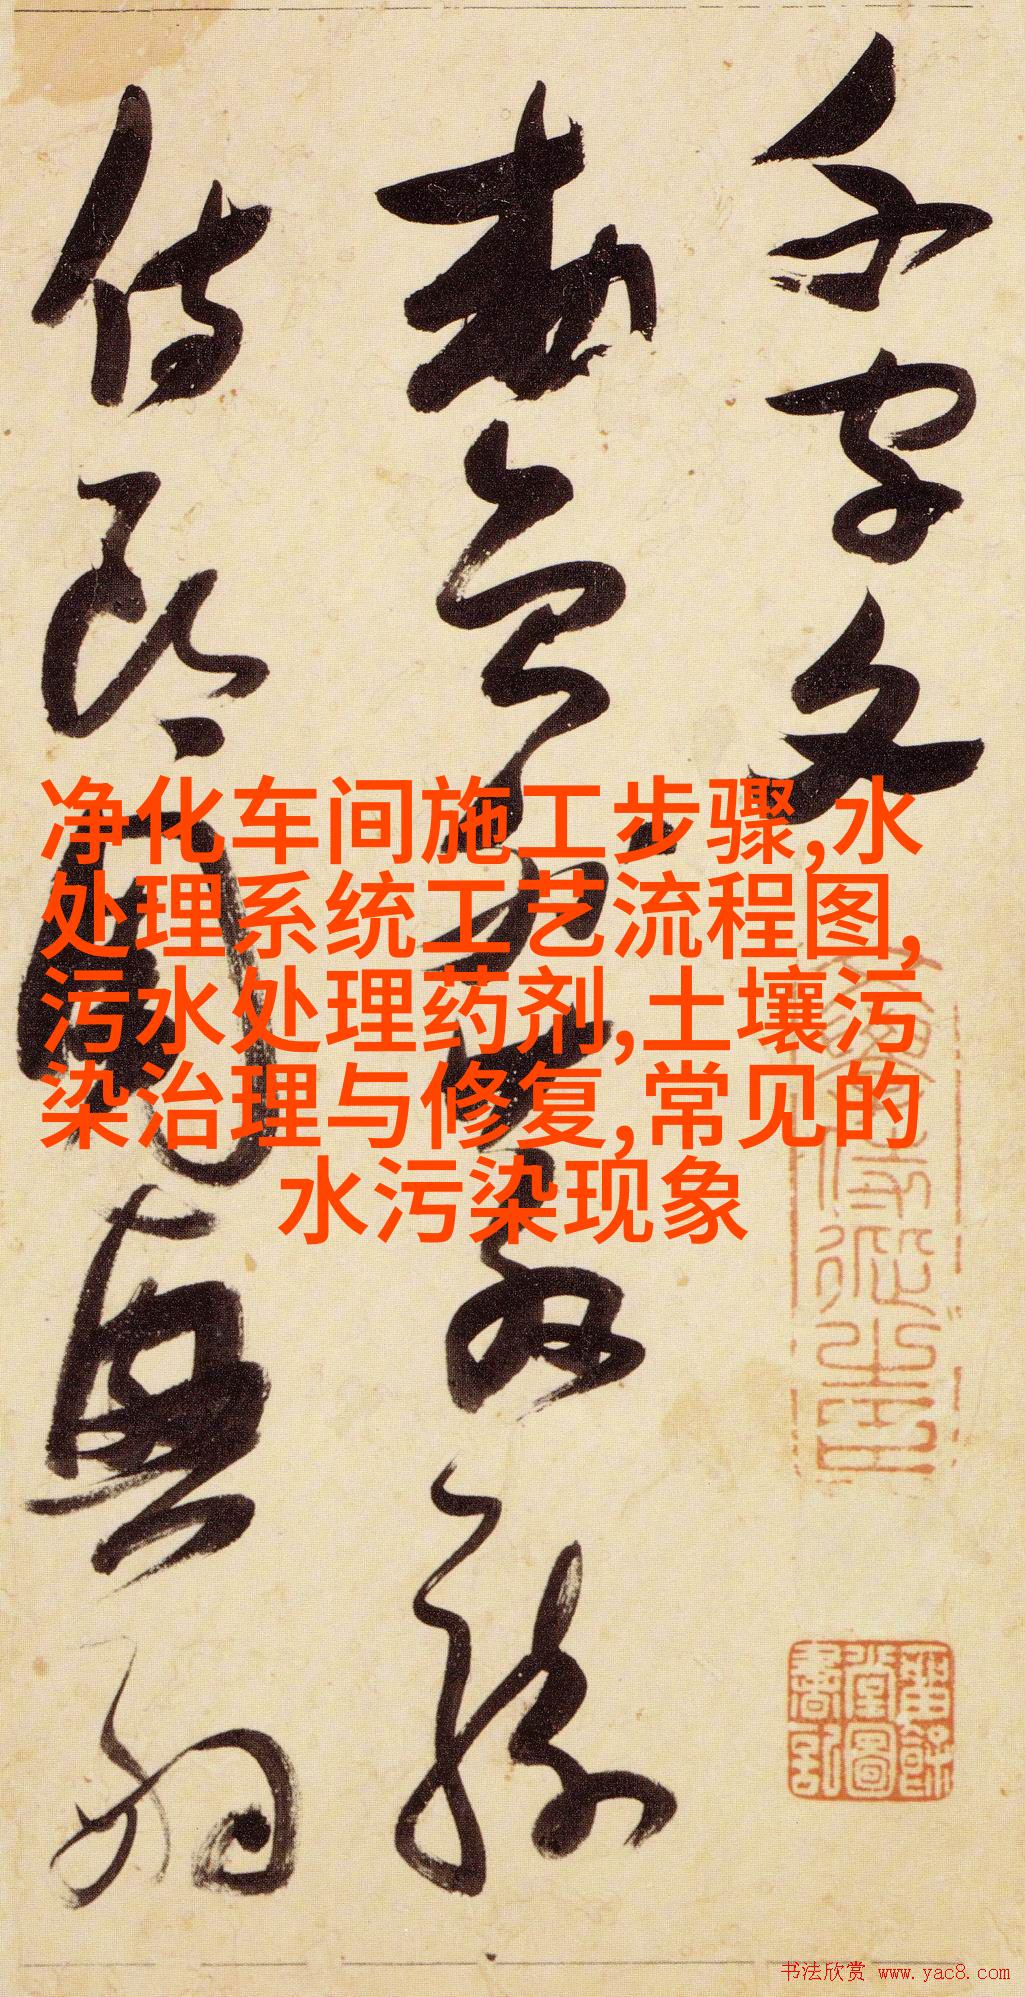 千字文
勑員外散騎
侍郎周興嗣
净化车间施工步骤,水
处理系统工艺流程图,
污水处理药剂,土壤污
染治理与修复,常见的
水污染现象
书法欣赏 www.yac8.com